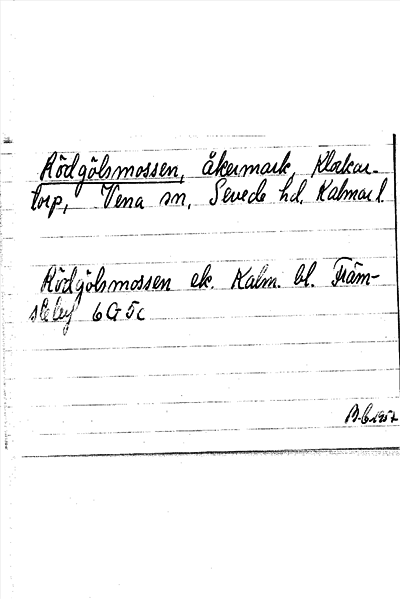 Rödgölsmossen, åkermark, Klockar-
torp, Vena sn, Sevede hd, Kalmar l.
Rödgölsmossen ek. Kalm. bl. Främ-
steby 6G5c